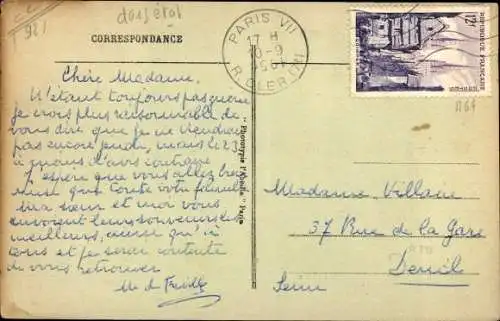 CORRESPONDANCE
PARIS VII
17 H
R. CLER (7e)
12F
REPUBLIQUE FRANÇAISE
Chère Madame.
N'étant toujours pas guérie
je crois plus raisonnable de
vous dire que je ne viendrai
pas encore jeudi, mais le 23
à moins d'avis contraire
J'espère que vous allez bien
ainsi que toute votre famille
ma sœur et moi vous
envoyons leurs souvenirs les
meilleurs, ainsi qu'à
tous et je serai contente
de vous retrouver
M de
" Phototypie l'Abeille " Paris
Madame Villain
37 Rue de la Gare
Deuil
Seine